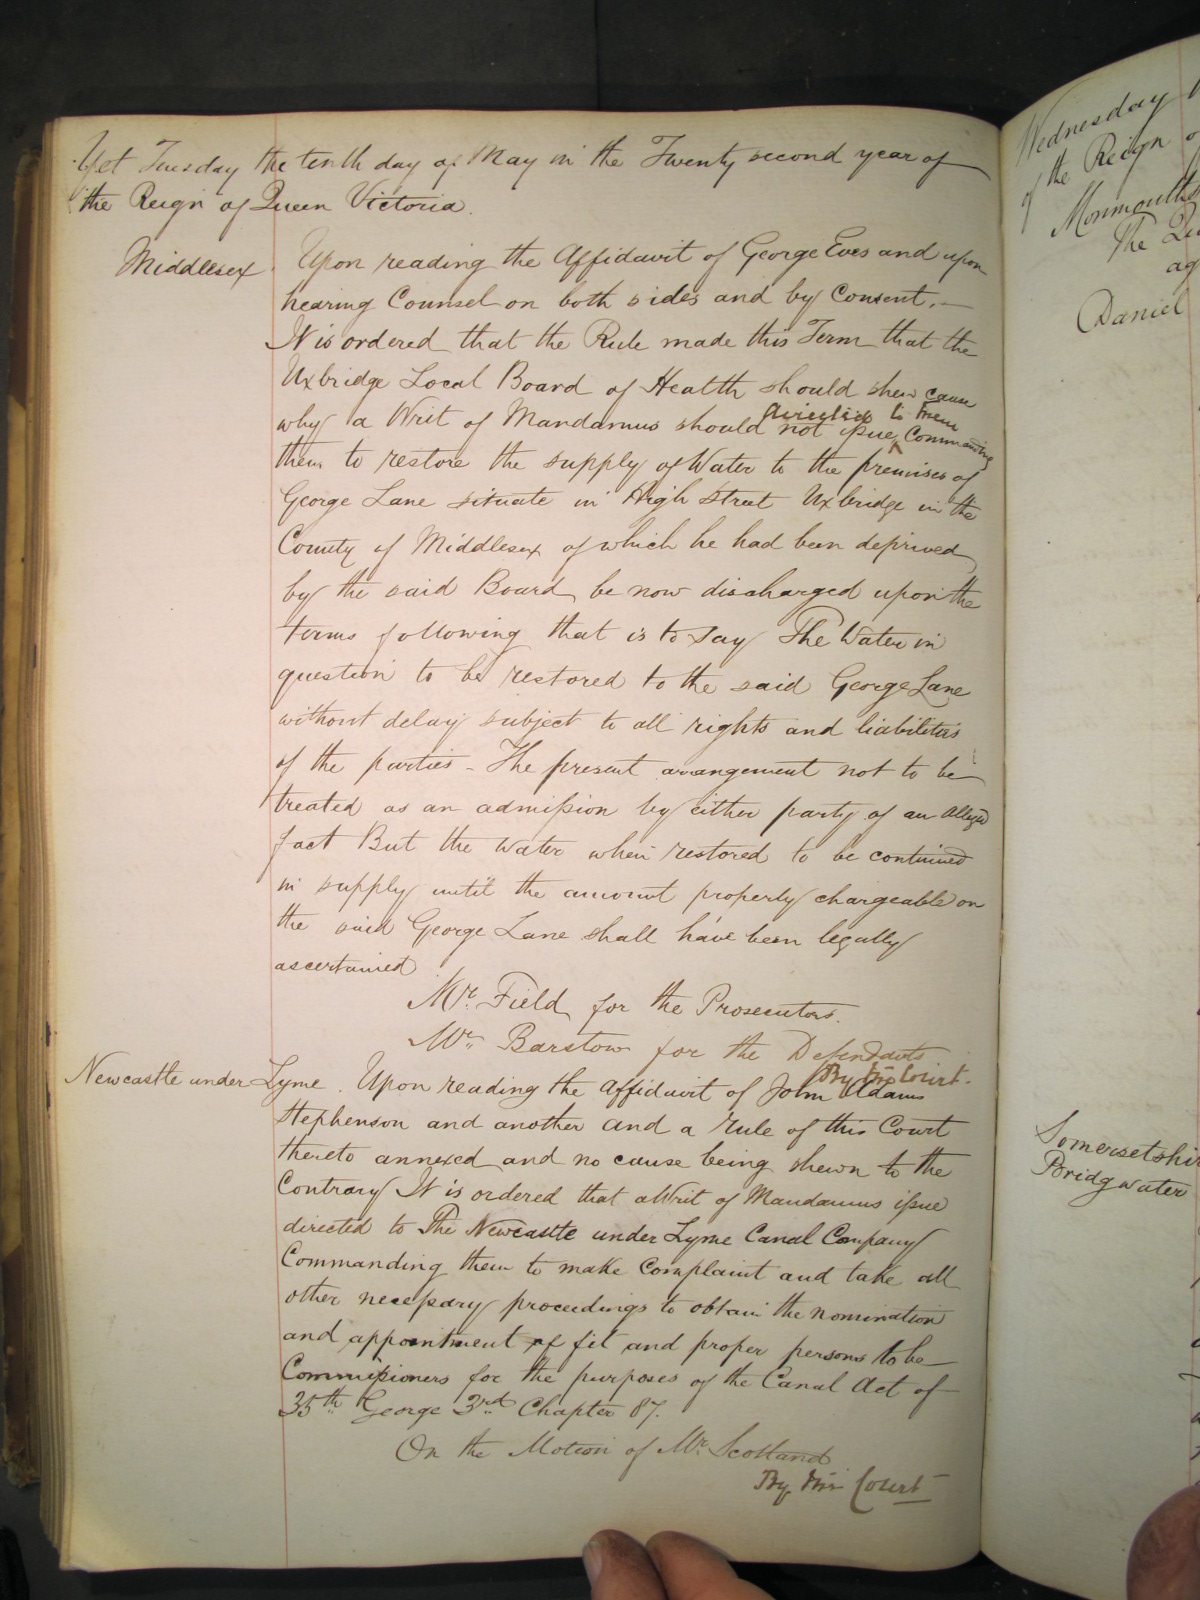 Yet Tuesday the tenth day of May in the Twenty second year of
the Reign of Queen Victoria.
Middlesex Upon reading the Affidavit of George Eves and upon
hearing Counsel on both sides and by Consent.
It is ordered that the Rule made this Term that the
Uxbridge Local Board of Health should shew cause
why a Writ of Mandamus should not issue ^ directed to them Commanding
them to restore the supply of Water to the premises of
George Lane situate in High Street Uxbridge in the
County of Middlesex of which he had been deprived
by the said Board be now discharged upon the
terms following that is to say The Water in
question to be restored to the said George Lane
without delay subject to all rights and liabilities
of the parties - The present arrangement not to be
treated as an admission by either party of an alleged
fact But the water when restored to be continued
in supply until the amount properly chargeable on
the said George Lane shall have been legally
ascertained
Mr. Field for the Prosecutors.
Mr. Barstow for the Defendants
By the Court.
Newcastle under Lyme. Upon reading the Affidavit of John Adams
Stephenson and another and a rule of this Court
thereto annexed and no cause being shewn to the
Contrary It is ordered that a Writ of Mandamus issue
directed to The Newcastle under Lyme Canal Company
Commanding them to make Complaint and take all
other necessary proceedings to obtain the nomination
and appointment of fit and proper persons to be
Commissioners for the purposes of the Canal Act of
35th George 3rd Chapter 87.
On the Motion of Mr. Scotland
By the Court
Wednesday
of the Reign
The
Daniel
Bridgwater